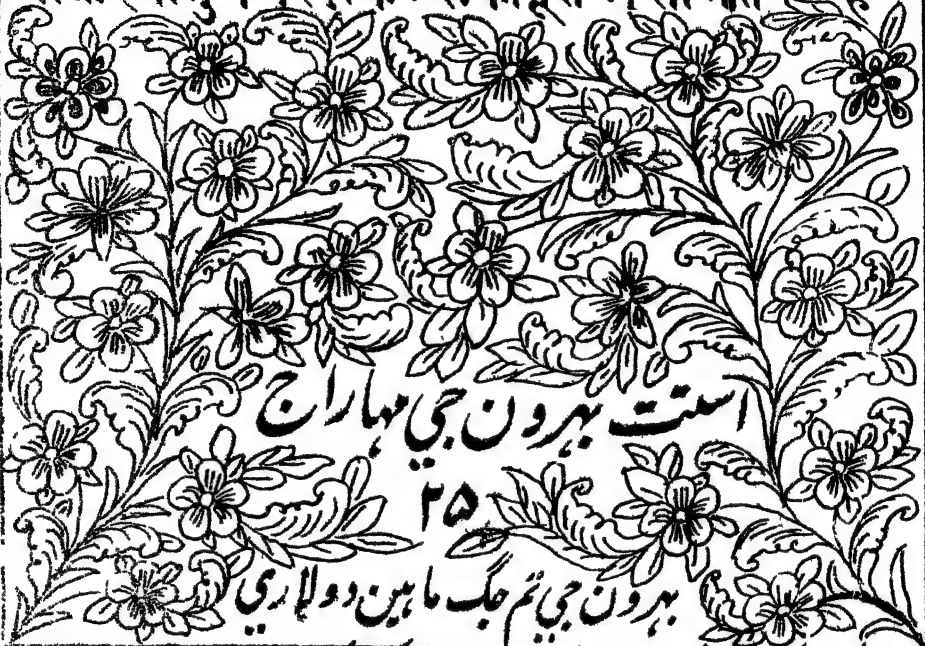 استت بہرون جي مہاراج
۲۵
بہرون جي تم جگ ماہين دولاري